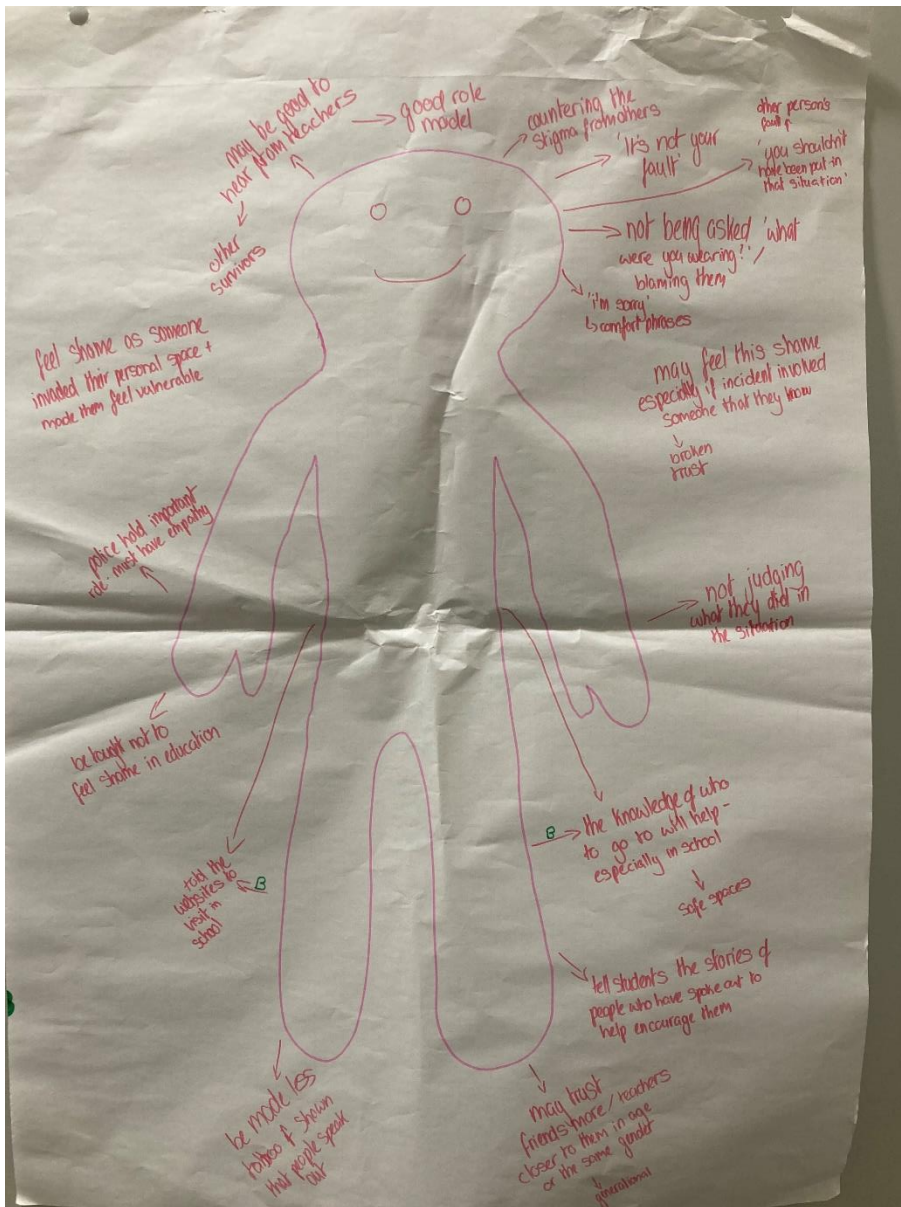 may be good to
hear from teachers
→ good role
model
other
survivors
countering the
stigma from others
'It's not your
fault'
other person's
fault
'you shouldn't
have been put in
that situation'
not being asked 'what
were you wearing?' /
blaming them
'i'm sorry'
↳ comfort phrases
feel shame as someone
invaded their personal space +
made them feel vulnerable
may feel this shame
especially if incident involved
someone that they know
broken
trust
police hold important
role: must have empathy
not judging
what they did in
the situation
be taught not to
feel shame in education
told the
websites to
visit in
school
B
B
the knowledge of who
to go to will help -
especially in school
safe spaces
tell students the stories of
people who have spoke out to
help encourage them
be made less
taboo & shown
that people speak
out
may trust
friends more / teachers
closer to them in age
or the same gender
generational